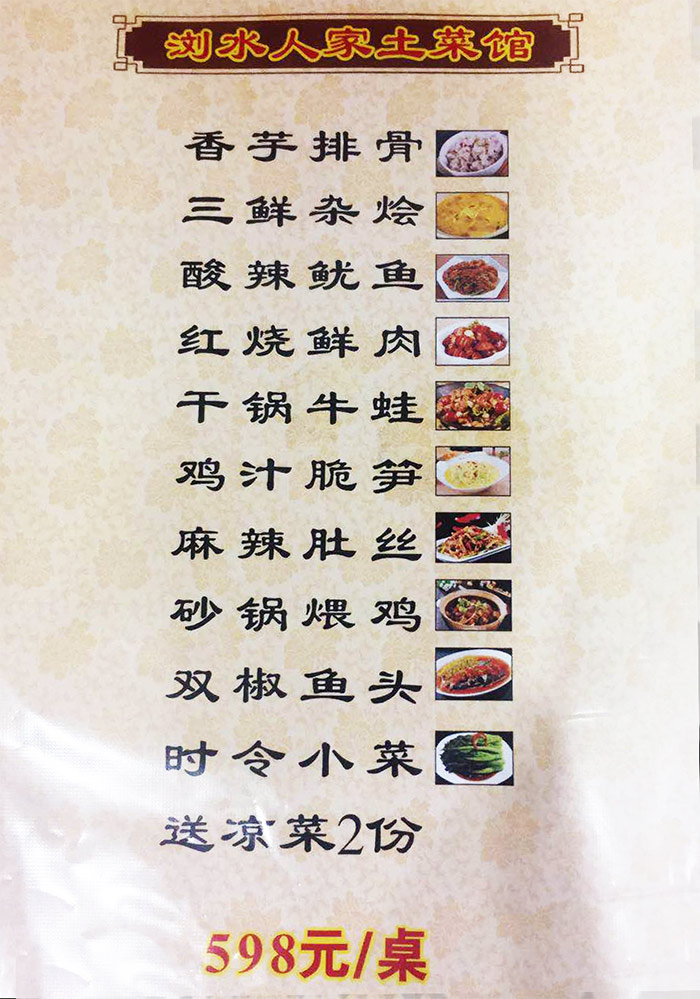 浏水人家土菜馆
香芋排骨
三鲜杂烩
酸辣鱿鱼
红烧鲜肉
干锅牛蛙
鸡汁脆笋
麻辣肚丝
砂锅煨鸡
双椒鱼头
时令小菜
送凉菜2份
598元/桌